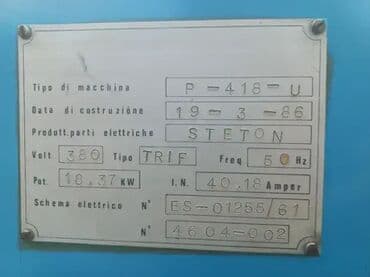 Tipo di macchina P-418-U
Data di costruzione 19-3-86
Produtt.parti elettriche STETON
Volt 380 Tipo TRIF Freq 50 Hz
Pot. 18.37 KW I.N. 40.18 Amper
Schema elettrico N° ES-01255/61
N° 4604-002